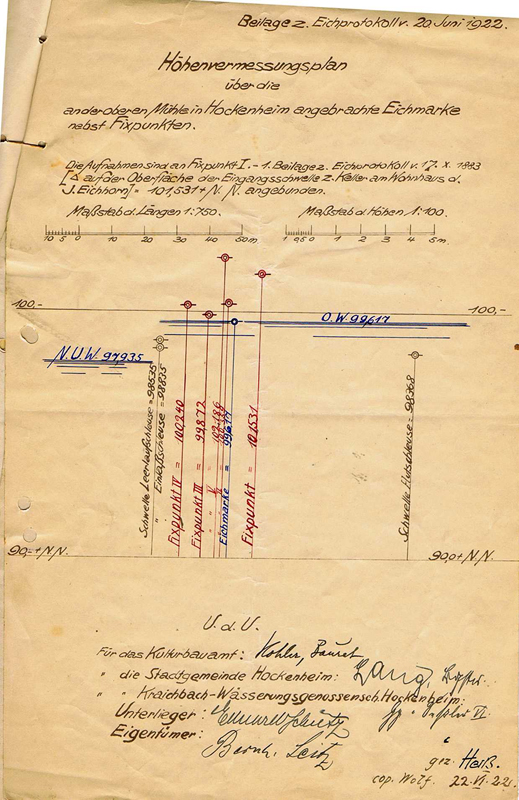 Beilage z. Eichprotokoll v. 20. Juni 1922.
Höhenvermessungsplan
über die
an der oberen Mühle in Hockenheim angebrachte Eichmarke
nebst Fixpunkten.
Die Aufnahmen sind an Fixpunkt I. - 1. Beilage z. Eichprotokoll v. 17. X. 1883
[△ auf der Oberfläche der Eingangsschwelle z. Keller am Wohnhaus d.
J. Eichhorn] - 101,531 + N.N. angebunden.
Maßstab d. Längen 1:750. Maßstab d. Höhen 1:100.
10 5 0 10 20 30 40 50 m. 1 0,5 0 1 2 3 4 5 m.
100,- 100,-
O.W. 99,617
N.U.W. 97,935
Schwelle Leerlaufschleuse = 98,535
" Einlaßschleuse = 98,835
Fixpunkt IV = 100,240
Fixpunkt III = 99,872
" V = 102,186
Eichmarke = 99,617
Fixpunkt = 101,531
Schwelle Hubschleuse = 98,268
90,- + N.N. 90,0 + N.N.
U. d. U.
Für das Kulturbauamt: Kohler, Baurat
" die Stadtgemeinde Hockenheim: Lang,
" " Kraichbach-Wässerungsgenossensch. Hockenheim:
Unterlieger:
Eigentümer: Bernh.
gez. Heiß.
cop. Wolf. 22. VI. 22.